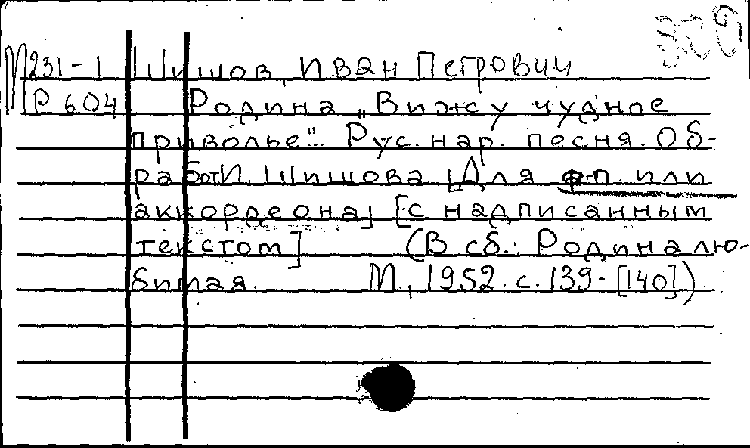 М231-1 Шишов, Иван Петрович
Р 604 Родина „Вижу чудное
приволье". Рус. нар. песня. Об-
раб. И. Шишова [Для ф-п. или
аккордеона] [с надписанным
текстом] (В сб.: Родина лю-
бимая. М., 1952. с. 139-[140])